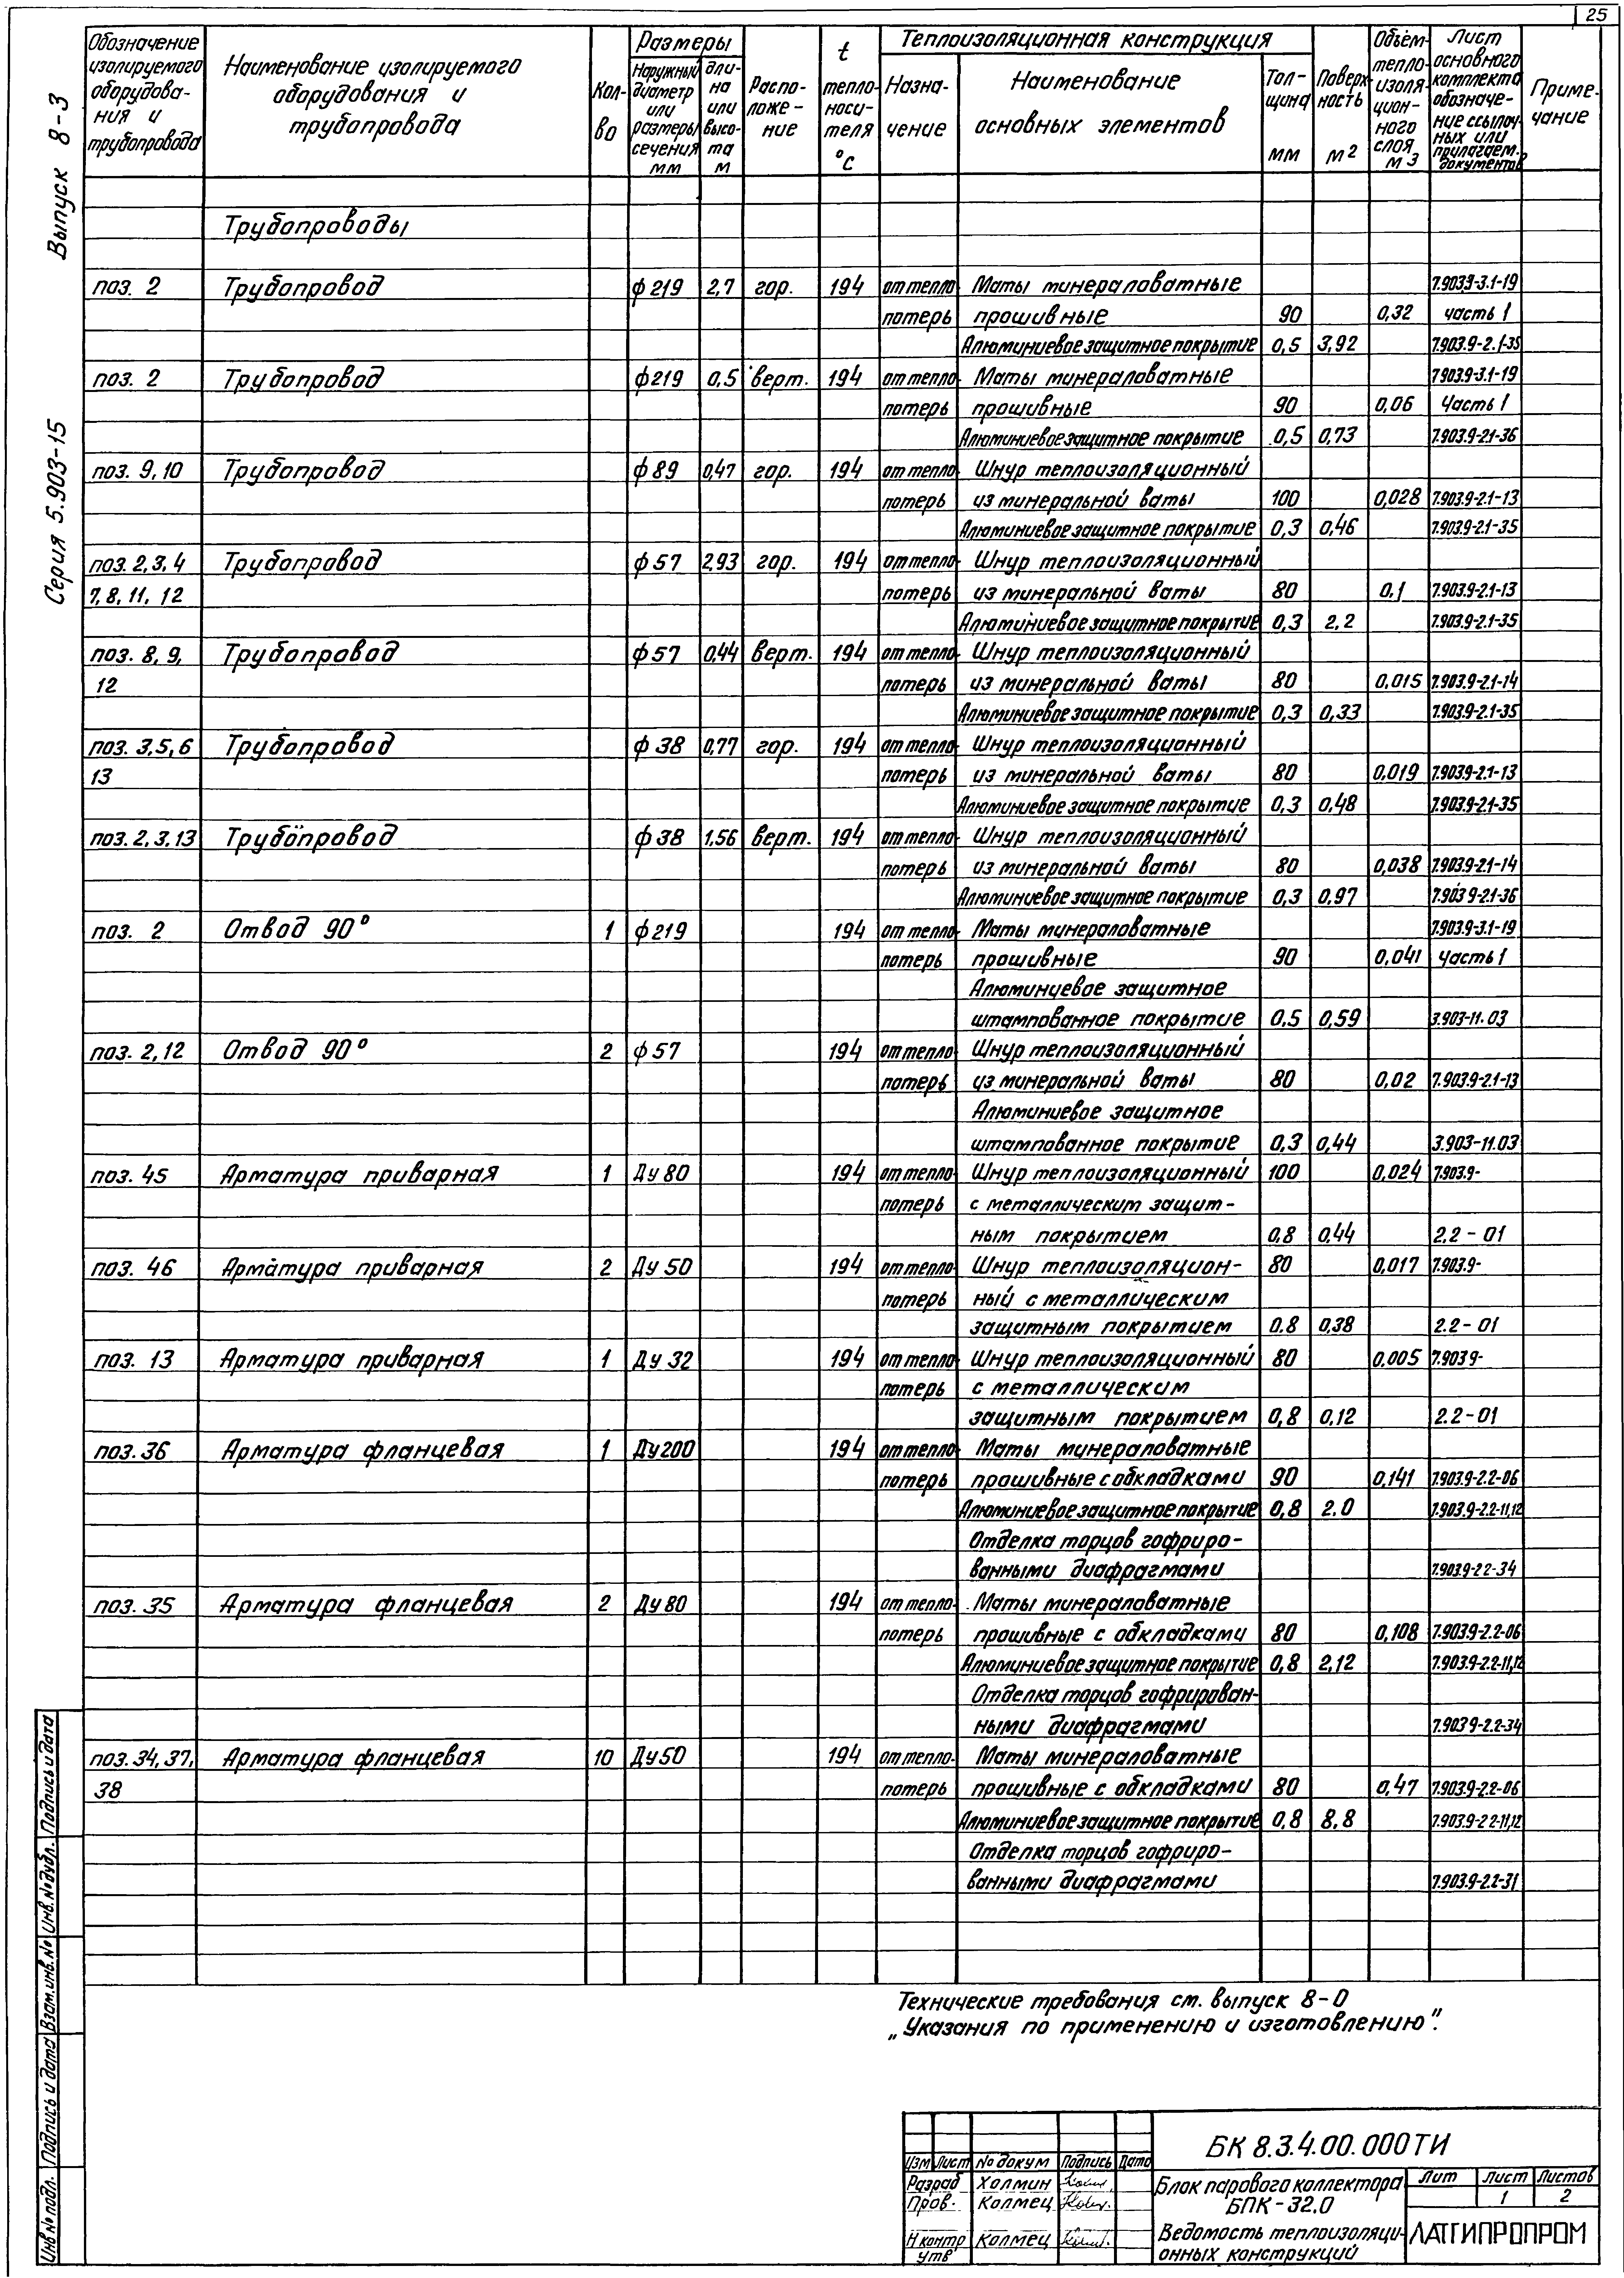 25
Выпуск 8-3
Серия 5.903-15
Обозначение изолируемого оборудова-ния и трубопровода
Наименование изолируемого оборудования и трубопровода
Кол-во
Размеры
Наружный диаметр или размеры сечения мм
дли-на или высо-та м
Распо-ложе-ние
t тепло-носи-теля °С
Теплоизоляционная конструкция
Назна-чение
Наименование основных элементов
Тол-щина мм
Поверх-ность м2
Объём тепло-изоля-цион-ного слоя м3
Лист основного комплекта обозначе-ние ссылоч-ных или прилагаем. документов
Приме-чание
Трубопроводы
поз. 2 Трубопровод ф219 2,7 гор. 194 от тепло- Маты минераловатные 7.903.9-3.1-19
потерь прошивные 90 0,32 часть 1
Алюминиевое защитное покрытие 0,5 3,92 7.903.9-2.1-35
поз. 2 Трубопровод ф219 0,5 верт. 194 от тепло- Маты минераловатные 7.903.9-3.1-19
потерь прошивные 90 0,06 Часть 1
Алюминиевое защитное покрытие 0,5 0,73 7.903.9-2.1-36
поз. 9, 10 Трубопровод ф89 0,47 гор. 194 от тепло- Шнур теплоизоляционный
потерь из минеральной ваты 100 0,028 7.903.9-2.1-13
Алюминиевое защитное покрытие 0,3 0,46 7.903.9-2.1-35
поз. 2, 3, 4 Трубопровод ф57 2,93 гор. 194 от тепло- Шнур теплоизоляционный
7, 8, 11, 12 потерь из минеральной ваты 80 0,1 7.903.9-2.1-13
Алюминиевое защитное покрытие 0,3 2,2 7.903.9-2.1-35
поз. 8, 9, Трубопровод ф57 0,44 верт. 194 от тепло- Шнур теплоизоляционный
12 потерь из минеральной ваты 80 0,015 7.903.9-2.1-14
Алюминиевое защитное покрытие 0,3 0,33 7.903.9-2.1-35
поз. 3, 5, 6 Трубопровод ф38 0,77 гор. 194 от тепло- Шнур теплоизоляционный
13 потерь из минеральной ваты 80 0,019 7.903.9-2.1-13
Алюминиевое защитное покрытие 0,3 0,48 7.903.9-2.1-35
поз. 2, 3, 13 Трубопровод ф38 1,56 верт. 194 от тепло- Шнур теплоизоляционный
потерь из минеральной ваты 80 0,038 7.903.9-2.1-14
Алюминиевое защитное покрытие 0,3 0,97 7.903 9-2.1-36
поз. 2 Отвод 90° 1 ф219 194 от тепло- Маты минераловатные 7.903.9-3.1-19
потерь прошивные 90 0,041 Часть 1
Алюминиевое защитное
штампованное покрытие 0,5 0,59 3.903-11.03
поз. 2, 12 Отвод 90° 2 ф57 194 от тепло- Шнур теплоизоляционный
потерь из минеральной ваты 80 0,02 7.903.9-2.1-13
Алюминиевое защитное
штампованное покрытие 0,3 0,44 3.903-11.03
поз. 45 Арматура приварная 1 Ду 80 194 от тепло- Шнур теплоизоляционный 100 0,024 7.903.9-
потерь с металлическим защит-
ным покрытием 0,8 0,44 2.2-01
поз. 46 Арматура приварная 2 Ду 50 194 от тепло- Шнур теплоизоляцион- 80 0,017 7.903.9-
потерь ный с металлическим
защитным покрытием 0.8 0,38 2.2-01
поз. 13 Арматура приварная 1 Ду 32 194 от тепло- Шнур теплоизоляционный 80 0.005 7.903 9-
потерь с металлическим
защитным покрытием 0,8 0,12 2.2-01
поз. 36 Арматура фланцевая 1 Ду 200 194 от тепло- Маты минераловатные
потерь прошивные с обкладками 90 0,141 7.903.9-2.2-06
Алюминиевое защитное покрытие 0,8 2.0 7.903.9-2.2-11,12
Отделка торцов гофриро-
ванными диафрагмами 7.903.9-2 2-34
поз. 35 Арматура фланцевая 2 Ду 80 194 от тепло- Маты минераловатные
потерь прошивные с обкладками 80 0,108 7.903.9-2.2-06
Алюминиевое защитное покрытие 0,8 2,12 7.903.9-2.2-11,12
Отделка торцов гофрирован-
ными диафрагмами 7.903 9-2.2-34
поз. 34, 37, Арматура фланцевая 10 Ду 50 194 от тепло- Маты минераловатные
38 потерь прошивные с обкладками 80 0,47 7.903.9-2.2-06
Алюминиевое защитное покрытие 0,8 8,8 7.903.9-2 2-11,12
Отделка торцов гофриро-
ванными диафрагмами 7.903.9-2.2-31
Технические требования см. выпуск 8-0
„Указания по применению и изготовлению".
Инв № подл. Подпись и дата Взам.инв.№ Инв.№дубл. Подпись и дата
БК 8.3.4.00.000ТИ
Изм Лист № докум Подпись Дата
Разраб Холмин
Пров. Колмец
Н контр Колмец
утв
Блок парового коллектора
БПК-32.0
Ведомость теплоизоляци-
онных конструкций
Лит Лист Листов
1 2
ЛАТГИПРОПРОМ